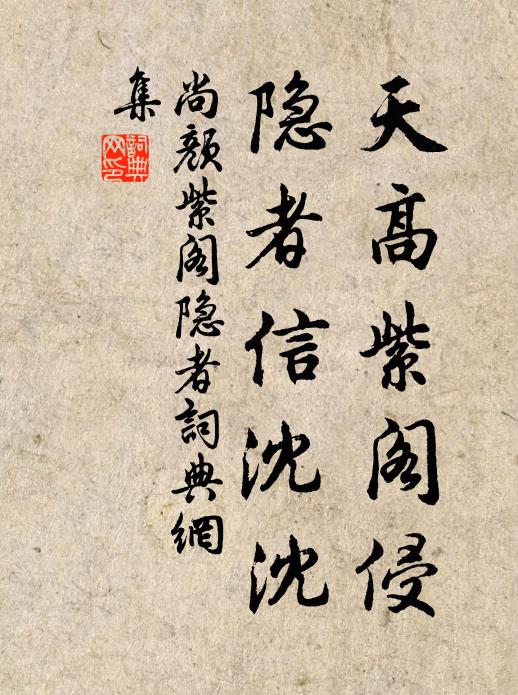 天高紫阁侵
隐者信沈沈
尚颜紫阁隐者詞典網
集
詞典
网印